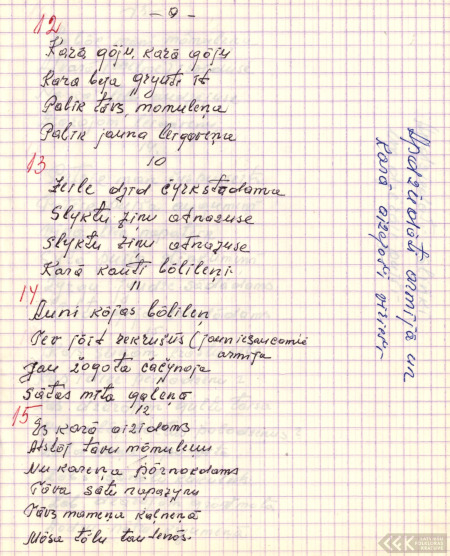 - 9 -
12
Karā gōju, karā gōju
Kara beja gryuti īt
Palik tāvs, momuleņa
Palik jauna leigaveņa
10
13
Zeile dzīd čyrkstādama
Slyktu ziņu atnazuse
Slyktu ziņu atnazuse
Karā kauti bōlileņi
11
14
Auni kōjas bōlileņ
Tev jōit rekrušūs (jauniesaucamie
armija
Jau žogota čačynoja
Sātas mīta galeņā
12
15
Es karā aizīdams
Atstōj tāvu mōmuleņu
Nu kareņa pōrnōkdams
Tāva sātu napazynu
Tāvs mameņa kalneņā
Mōsa tōlu tautenōs
Apdziedāti armijā un
karā aizgājuši vīrieši
LATVIEŠU
FOLKLORAS
KRĀTUVE